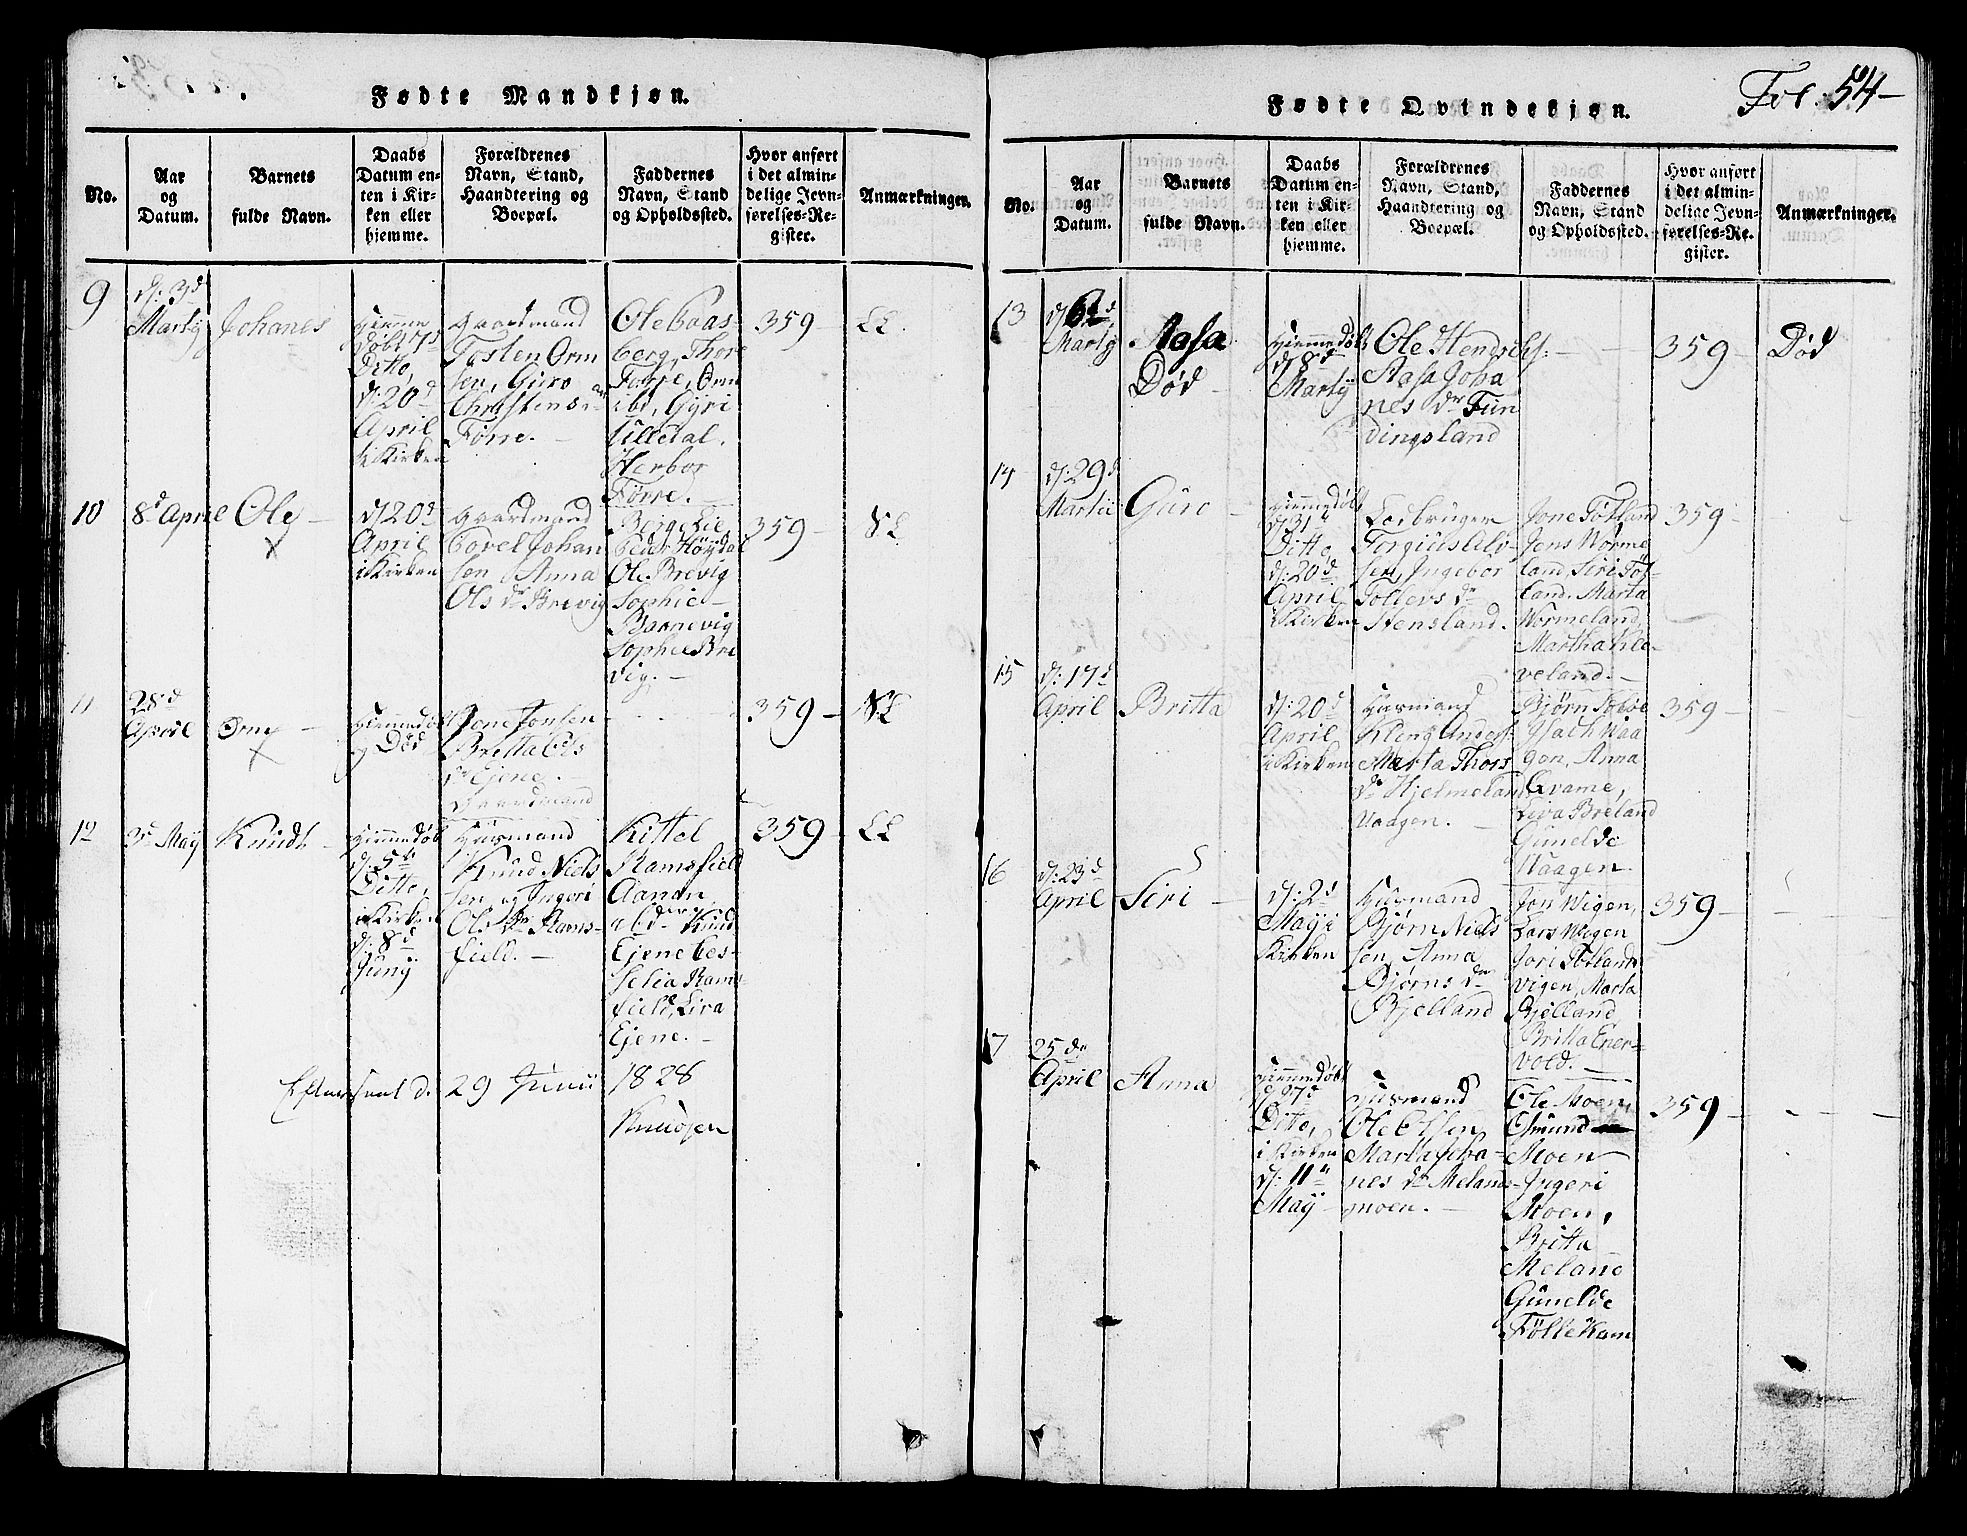 Fødte Mandkjøn.
No.
Aar
og
Datum.
Barnets
fulde Navn.
Daabs
Datum en-
ten i Kir-
ken eller
hjemme.
Forældrenes
Navn, Stand,
Haandtering og
Boepæl.
Faddernes
Navn, Stand
og Opholdssted.
Hvor anført
i det almin-
delige Jevn-
førelses-Re-
gister.
Anmærkninger.
9
d: 3d
Martÿ
Johanes
Hjemme
døbt 7d
Ditto,
d: 20d
April
i Kirken
Gaardmand
Tosten Orm
sen, Guro
Christens dr
Førre.
Ole Baas-
berg, Thor
Førre, Orm
ibd, Gÿri
Lilledal.
Herbor
Førre.
359
10
8d April
Ole
d: 20d
April
i Kirken
Gaardmand
Povel Johan
sen Anna
Ols dr Brevig
Børge Lie,
Peder Høÿdal
Ole Brevig
Sophie
Baanevig
Sophie Bre
vig.
359
11
28d
April
Orm
Hjemmedøbt
og Død
Jone Jonsen
Britta Ols
dr Ejene.
Gaardmand
359
12
3d Maÿ
Knudt
Hjemmedøbt
d: 5te
Ditto,
i Kirken
d: 8d
Junÿ
Husmand
Knud Niels
sen, og Ingeri
Ols dr Rams-
field.
Kittel
Ramsfield
Aanon
ibd. Knud
Ejene Ces-
selia Rams-
field, Liva
Ejene.
359
Efterseet d. 29 Junii 1828
Knudsen
Fol. 54
Fødte Qvindekjøn.
No.
Aar
og
Datum.
Barnets
fulde Navn.
Daabs
Datum en-
ten i Kir-
ken eller
hjemme.
Forældrenes
Navn, Stand,
Haandtering og
Boepæl.
Faddernes
Navn, Stand
og Opholdssted.
Hvor anført
i det almin-
delige Jevn-
førelses-Re-
gister.
Anmærkninger.
13
Martÿ
Aasa
Død
Hjemmedøbt
d: 8d
Martÿ
Ole Hendrichs:
Aasa Joha
nes dr Fun
dingsland
359
Død
14
d: 29d
Martii
Guro
Hjemmedøbt
d: 31te
Ditto,
d: 20d
April
i Kirken
Ledbruger
Torgius Alv-
sen, Ingebor
Tollevs dr
Stensland.
Jone Tøtland
Jens Worme
land, Siri Tøt-
land. Marta
Wormeland,
Martha Kle-
veland.
359
15
d: 17d
April
Britta
d: 20d
April
i Kirken
Husmand
Kleng Anders:
Marta Thors
dr Hjelmeland
Vaagen.
Bjørn Tobøe
Ysach Waa
gen, Anna
Grame,
Liva Breland
Gunelde
Waagen.
359
16
d: 23d
April
Siri
d: 2d
Maÿ i
Kirken
Husmand
Bjørn Niels
sen, Anna
Bjørns dr
Bjelland
Jon Wigen,
Lars Wigen
Jori Tøtlands
vigen, Marta
Bjelland,
Britta Ener-
vold.
359
17
25de
April
Anna
Hjemmedøbt
d 27d
Ditto,
i Kirken
d: 11te
Maÿ
Husmand
Ole Olsen
Marta Joha-
nes dr Melands-
moen.
Ole Moen,
Osmund
Moen
Ingeri
Moen,
Britta
Meland
Gunelde
Føllekam
359